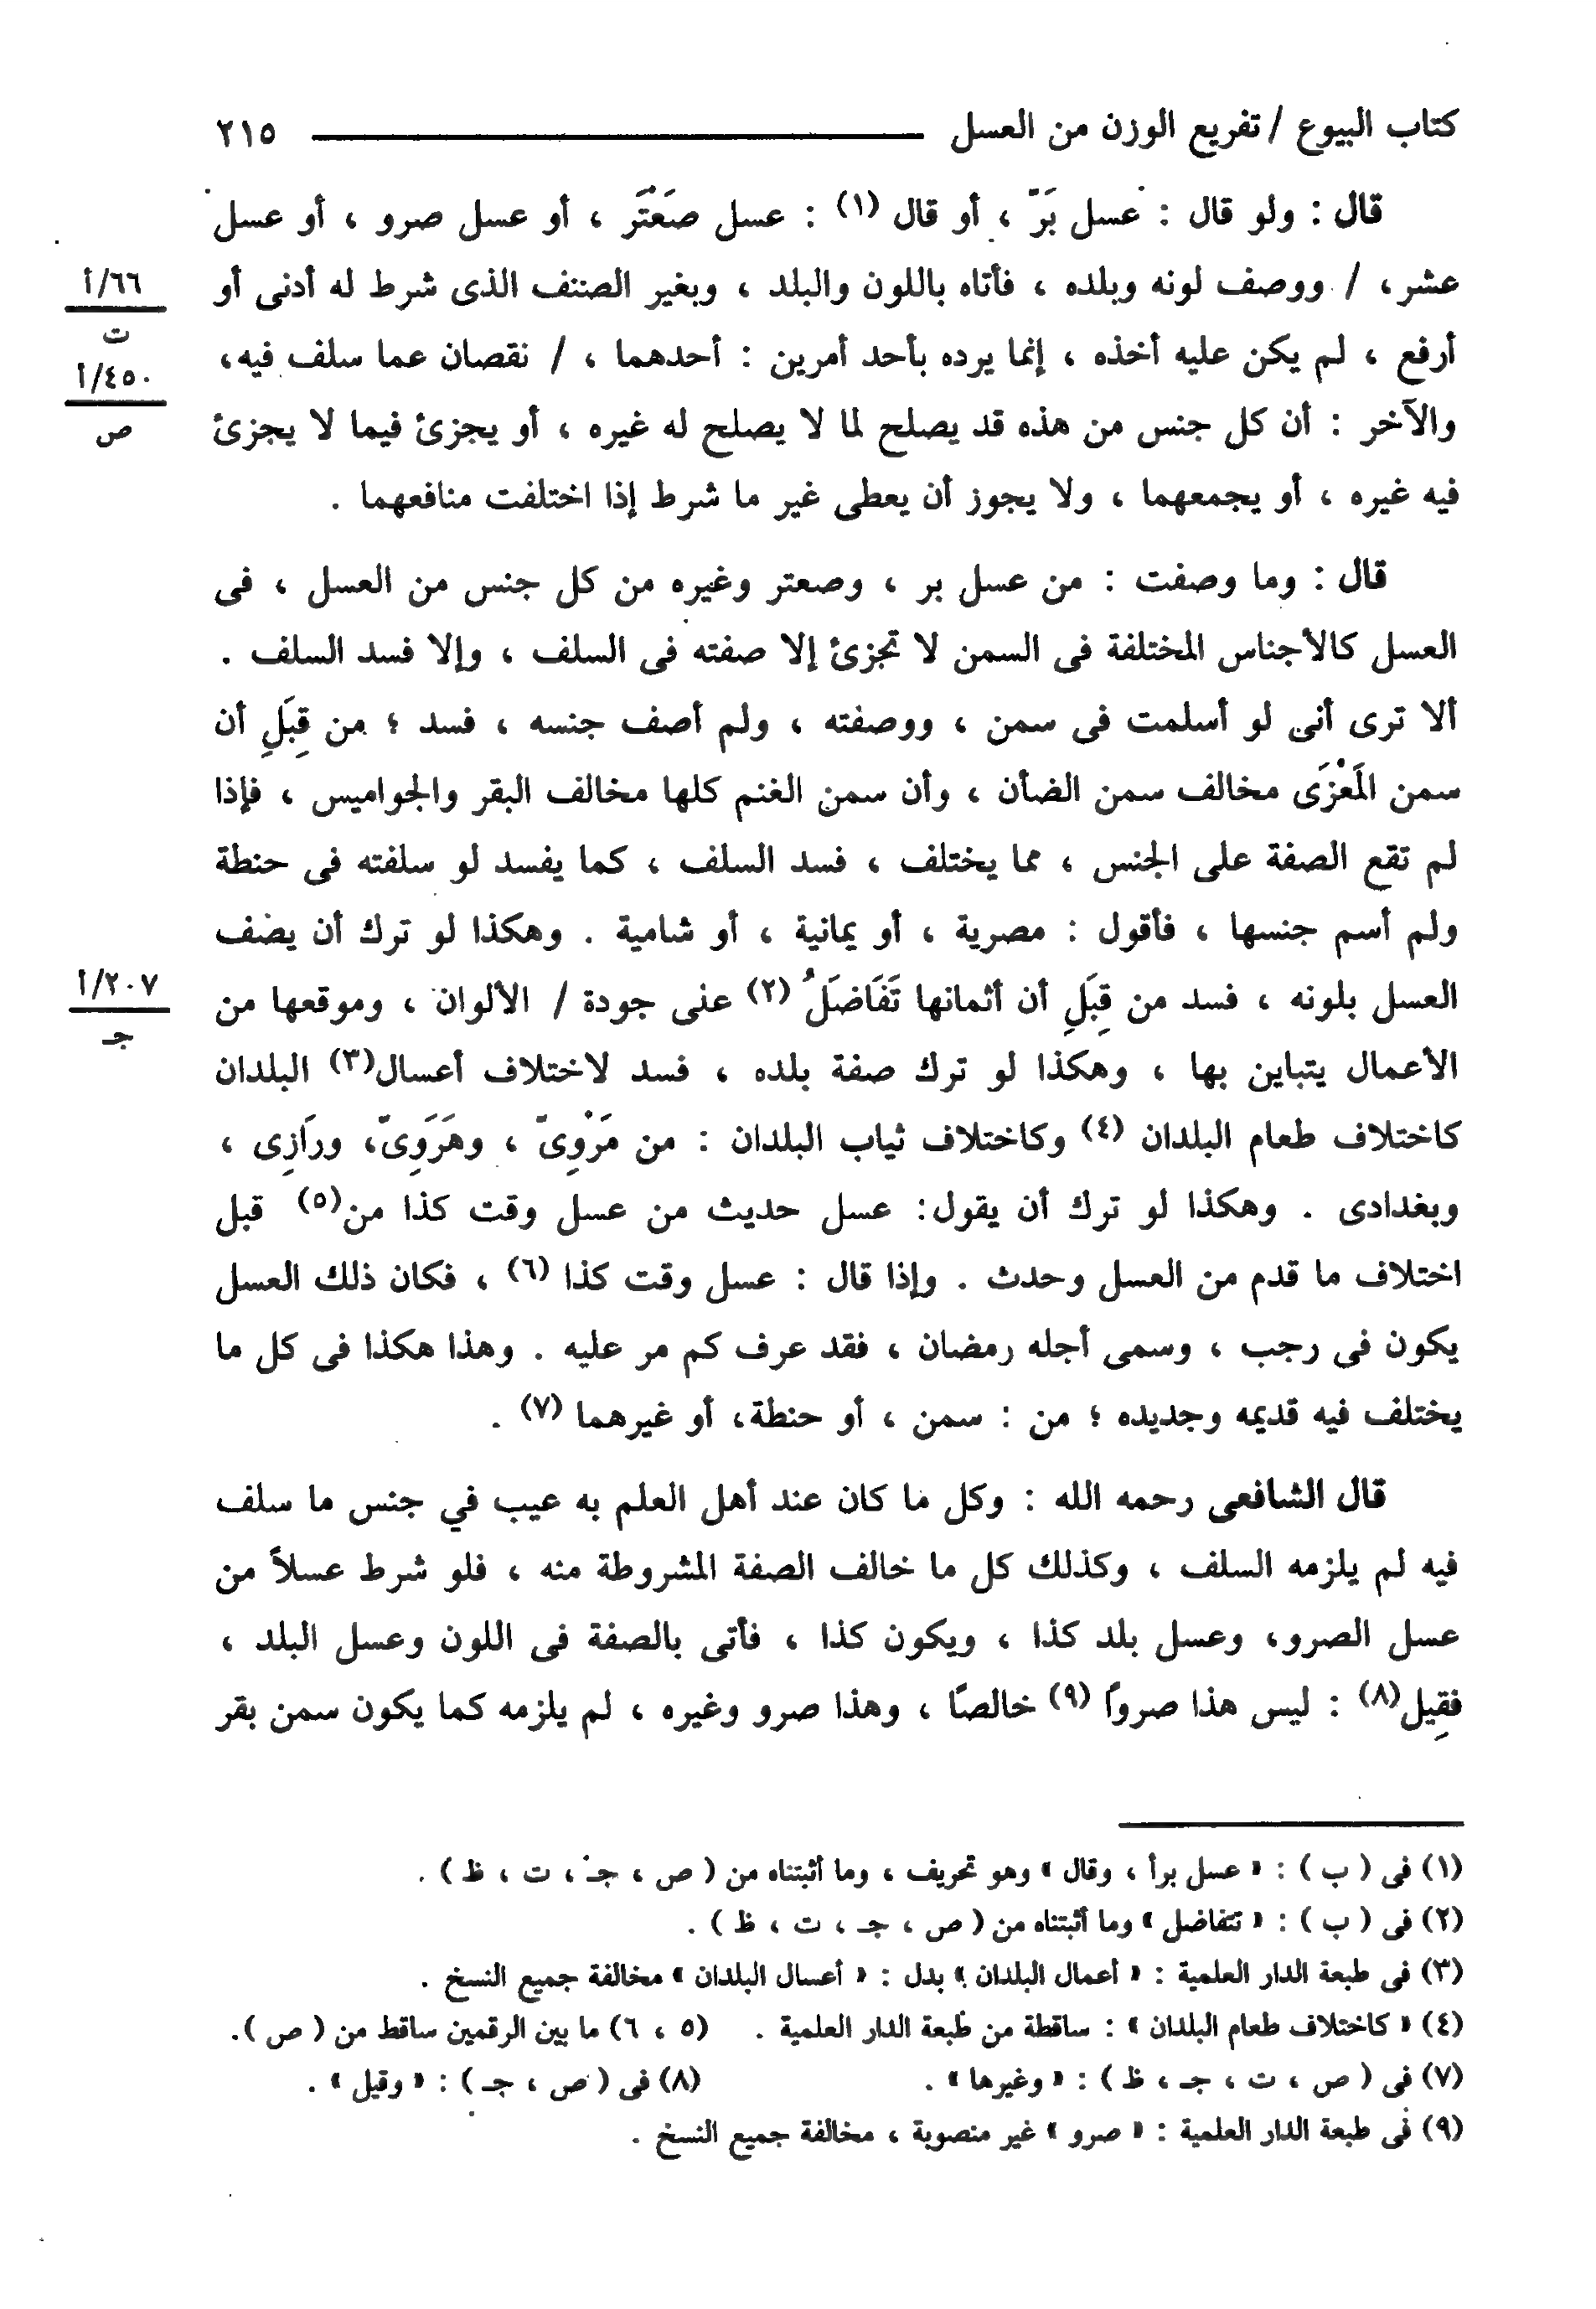 كتاب البيوع / تفريع الوزن من العسل ــــــــــــ ٢١٥
قال : ولو قال : عسل بَرّ ، أو قال (١) : عسل صَعْتَر ، أو عسل صرو ، أو عسل
عشر، / ووصف لونه وبلده ، فأتاه باللون والبلد ، وبغير الصنف الذى شرط له أدنى أو
٦٦/أ
ت
أرفع ، لم يكن عليه أخذه ، إنما يرده بأحد أمرين : أحدهما ، / نقصان عما سلف فيه،
٤٥٠/أ
ص
والآخر : أن كل جنس من هذه قد يصلح لما لا يصلح له غيره ، أو يجزئ فيما لا يجزئ
فيه غيره ، أو يجمعهما ، ولا يجوز أن يعطى غير ما شرط إذا اختلفت منافعهما .
قال : وما وصفت : من عسل بر ، وصعتر وغيره من كل جنس من العسل ، فى
العسل كالأجناس المختلفة فى السمن لا تجزئ إلا صفته فى السلف ، وإلا فسد السلف .
ألا ترى أنى لو أسلمت فى سمن ، ووصفته ، ولم أصف جنسه ، فسد ؛ من قِبَلِ أن
سمن المَعْزَى مخالف سمن الضأن ، وأن سمن الغنم كلها مخالف البقر والجواميس ، فإذا
لم تقع الصفة على الجنس ، مما يختلف ، فسد السلف ، كما يفسد لو سلفته فى حنطة
ولم أسم جنسها ، فأقول : مصرية ، أو يمانية ، أو شامية . وهكذا لو ترك أن يصف
العسل بلونه ، فسد من قِبَلِ أن أثمانها تَفَاضَلُ (٢) عنى جودة / الألوان ، وموقعها من
٢٠٧/أ
جـ
الأعمال يتباين بها ، وهكذا لو ترك صفة بلده ، فسد لاختلاف أعسال(٣) البلدان
كاختلاف طعام البلدان (٤) وكاختلاف ثياب البلدان : من مَرْوِىّ ، وهَرَوِىّ، ورَازِى ،
وبغدادى . وهكذا لو ترك أن يقول: عسل حديث من عسل وقت كذا من(٥) قبل
اختلاف ما قدم من العسل وحدث . وإذا قال : عسل وقت كذا (٦) ، فكان ذلك العسل
يكون فى رجب ، وسمى أجله رمضان ، فقد عرف كم مر عليه . وهذا هكذا فى كل ما
يختلف فيه قديمه وجديده ؛ من : سمن ، أو حنطة، أو غيرهما (٧) .
قال الشافعى رحمه الله : وكل ما كان عند أهل العلم به عيب في جنس ما سلف
فيه لم يلزمه السلف ، وكذلك كل ما خالف الصفة المشروطة منه ، فلو شرط عسلاً من
عسل الصرو، وعسل بلد كذا ، ويكون كذا ، فأتى بالصفة فى اللون وعسل البلد ،
فقِيل(٨) : ليس هذا صروًا (٩) خالصًا ، وهذا صرو وغيره ، لم يلزمه كما يكون سمن بقر
(١) فى ( ب ) : « عسل برأ ، وقال » وهو تحريف ، وما أثبتناه من ( ص ، جـ ، ت ، ظ ) .
(٢) فى ( ب ) : « تتفاضل » وما أثبتناه من ( ص ، جـ ، ت ، ظ ) .
(٣) فى طبعة الدار العلمية : « أعمال البلدان » بدل : « أعسال البلدان » مخالفة جميع النسخ .
(٤) « كاختلاف طعام البلدان » : ساقطة من طبعة الدار العلمية . (٥ ، ٦) ما بين الرقمين ساقط من ( ص ).
(٧) فى ( ص ، ت ، جـ ، ظ ) : « وغيرها » . (٨) فى ( ص ، جـ ) : « وقيل » .
(٩) فى طبعة الدار العلمية : « صرو » غير منصوبة ، مخالفة جميع النسخ .